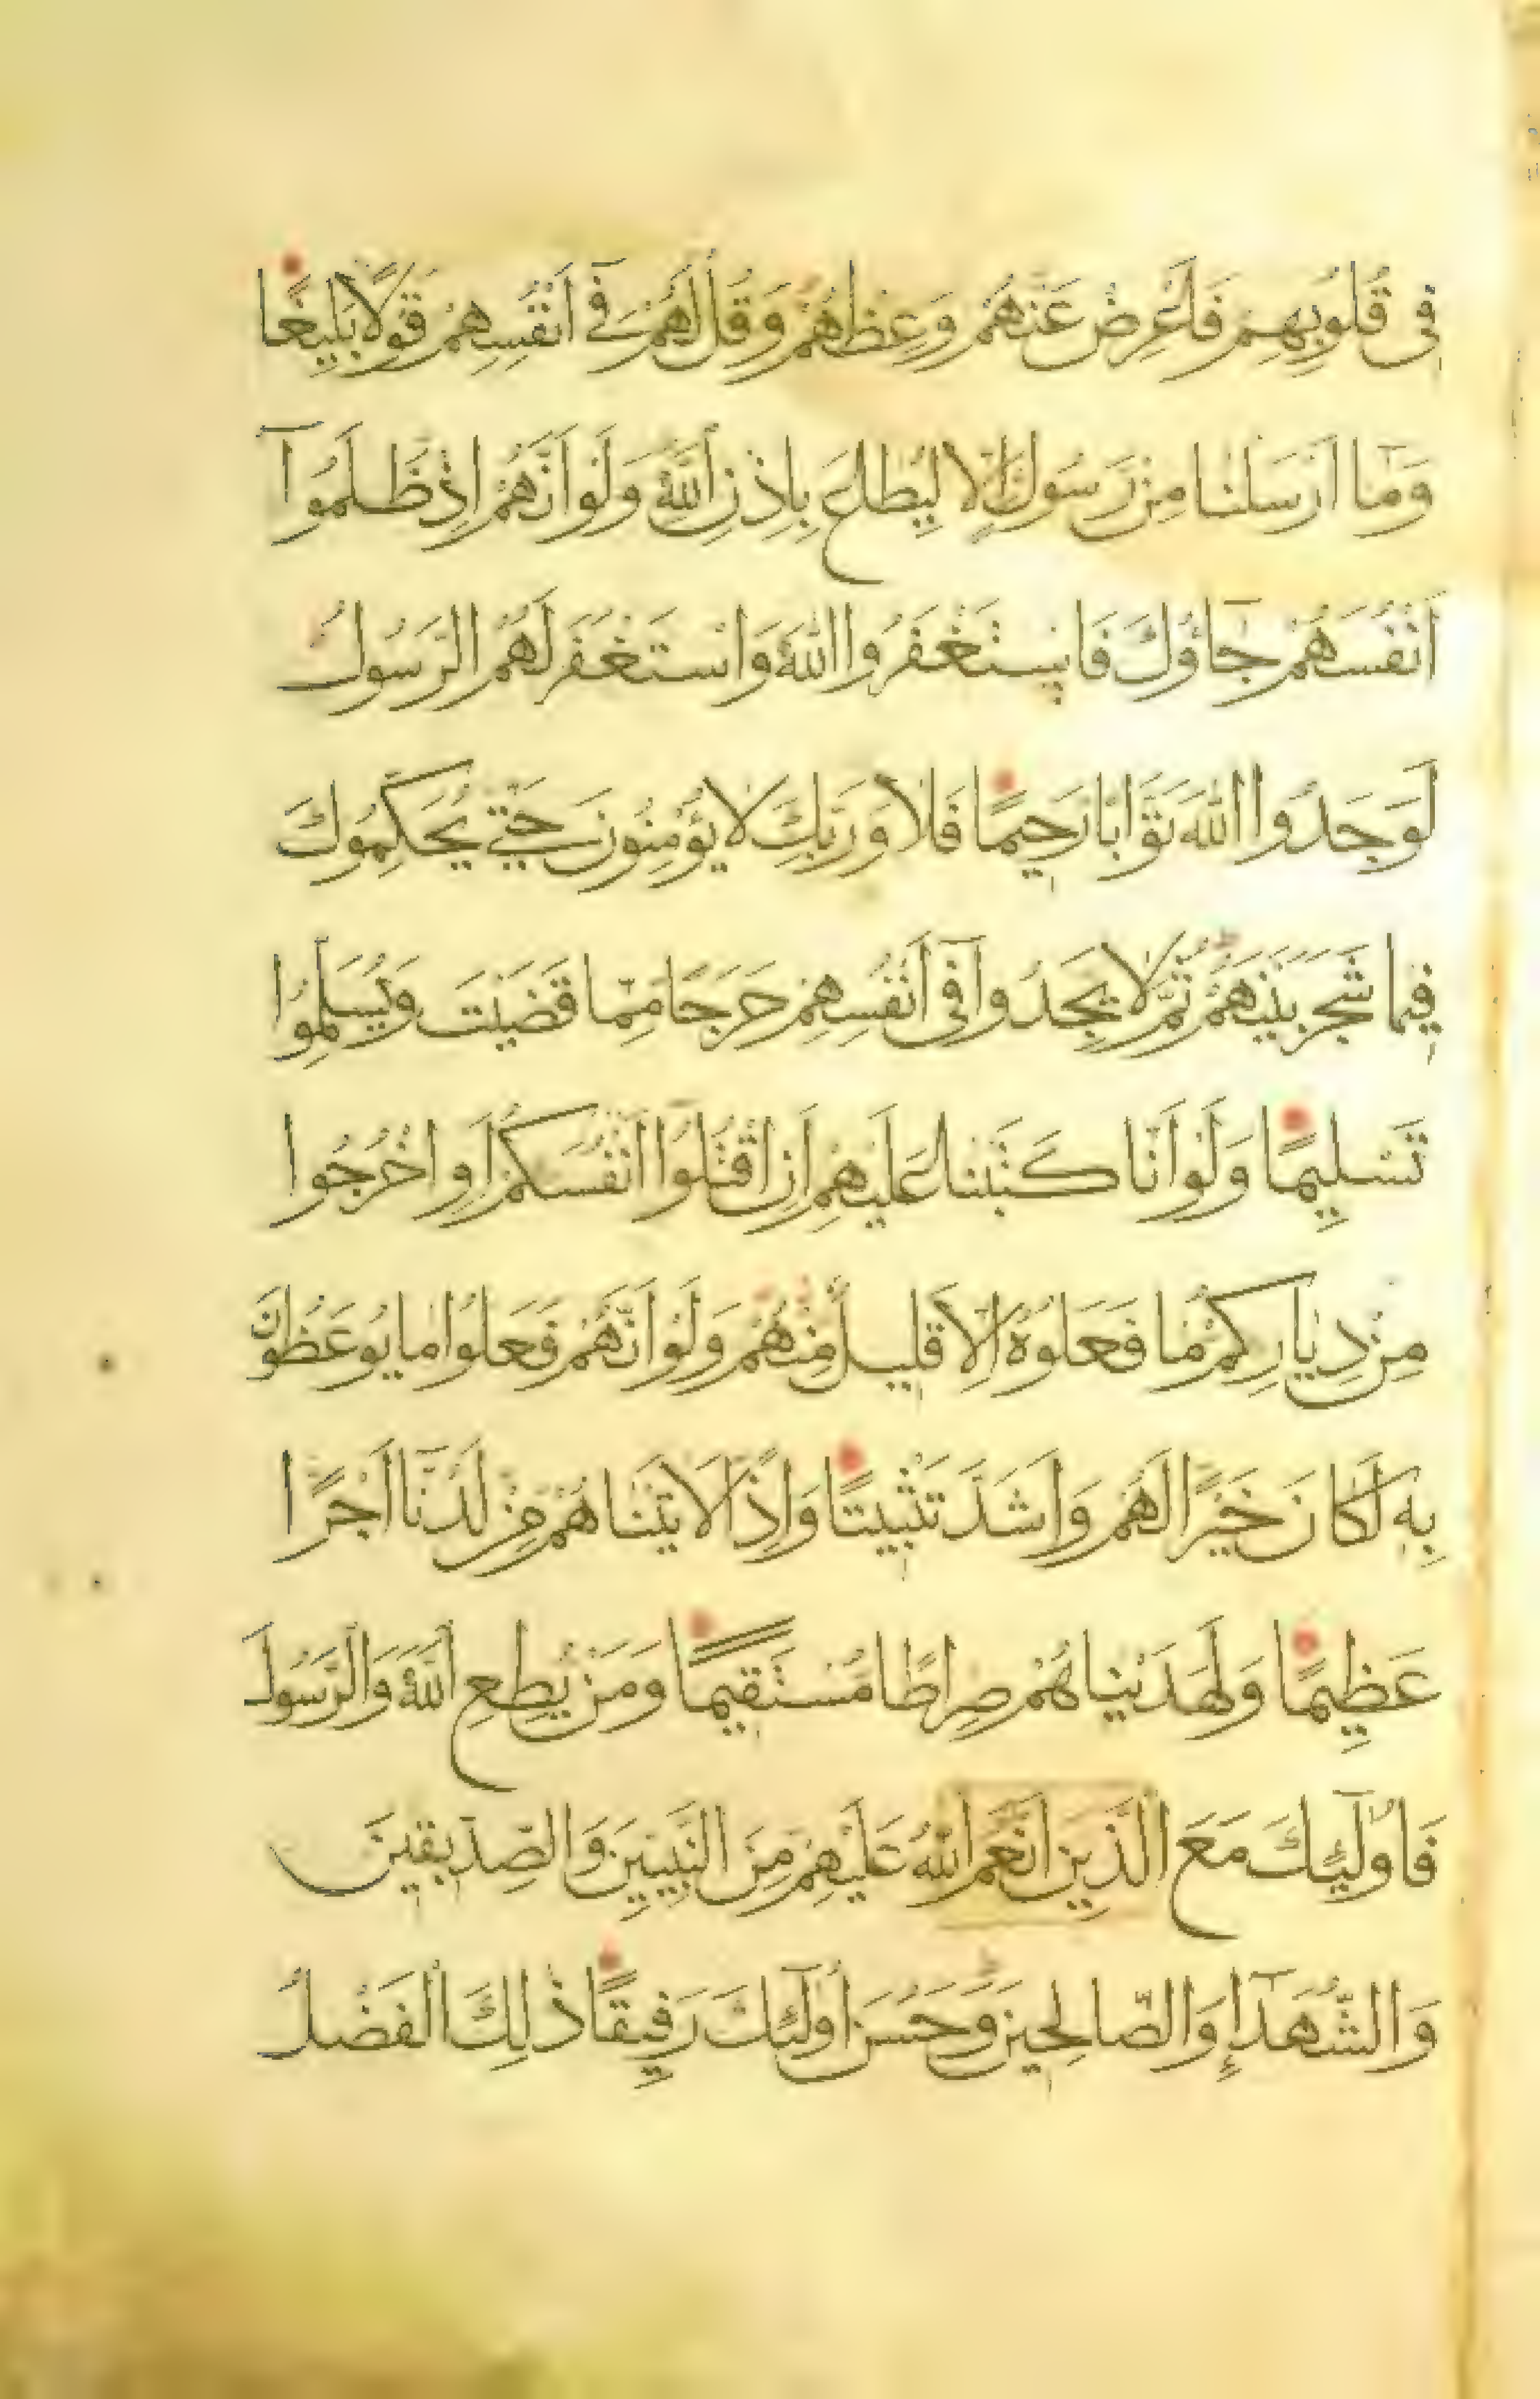 فِى قُلُوبِهِمْ فَاَعْرِضْ عَنْهُمْ وَعِظْهُمْ وَقُلْ لَهُمْ فِٓى اَنْفُسِهِمْ قَوْلًا بَلِيغًا
وَمَٓا اَرْسَلْنَا مِنْ رَسُولٍ اِلَّا لِيُطَاعَ بِاِذْنِ اللّٰهِ وَلَوْ اَنَّهُمْ اِذْ ظَلَمُٓوا
اَنْفُسَهُمْ جَٓاؤُكَ فَاسْتَغْفَرُوا اللّٰهَ وَاسْتَغْفَرَ لَهُمُ الرَّسُولُ
لَوَجَدُوا اللّٰهَ تَوَّابًا رَحِيمًا فَلَا وَرَبِّكَ لَا يُؤْمِنُونَ حَتّٰى يُحَكِّمُوكَ
فِيمَا شَجَرَ بَيْنَهُمْ ثُمَّ لَا يَجِدُوا فِٓى اَنْفُسِهِمْ حَرَجًا مِمَّا قَضَيْتَ وَيُسَلِّمُوا
تَسْلِيمًا وَلَوْ اَنَّا كَتَبْنَا عَلَيْهِمْ اَنِ اقْتُلُٓوا اَنْفُسَكُمْ اَوِ اخْرُجُوا
مِنْ دِيَارِكُمْ مَا فَعَلُوهُ اِلَّا قَلِيلٌ مِنْهُمْ وَلَوْ اَنَّهُمْ فَعَلُوا مَا يُوعَظُونَ
بِهِ لَكَانَ خَيْرًا لَهُمْ وَاَشَدَّ تَثْبِيتًا وَاِذًا لَاٰتَيْنَاهُمْ مِنْ لَدُنَّٓا اَجْرًا
عَظِيمًا وَلَهَدَيْنَاهُمْ صِرَاطًا مُسْتَقِيمًا وَمَنْ يُطِعِ اللّٰهَ وَالرَّسُولَ
فَاُولٰٓئِكَ مَعَ الَّذِينَ اَنْعَمَ اللّٰهُ عَلَيْهِمْ مِنَ النَّبِيِّينَ وَالصِّدِّيقِينَ
وَالشُّهَدَٓاءِ وَالصَّالِحِينَ وَحَسُنَ اُولٰٓئِكَ رَفِيقًا ذٰلِكَ الْفَضْلُ